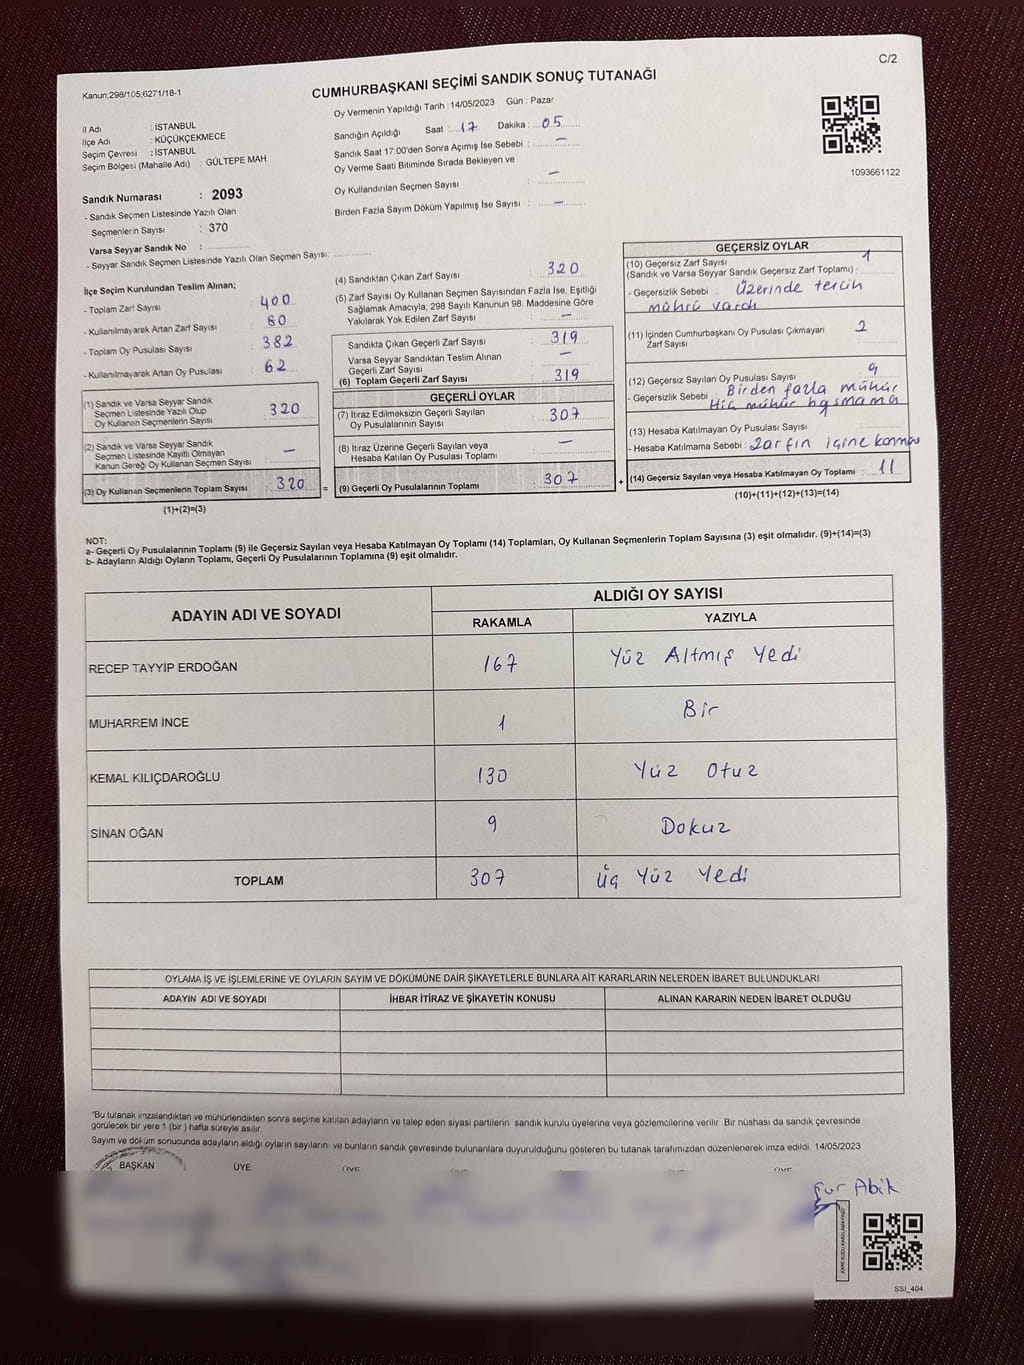 C/2
Kanun;298/105,6271/18-1
CUMHURBAŞKANI SEÇİMİ SANDIK SONUÇ TUTANAĞI
Oy Vermenin Yapıldığı Tarih : 14/05/2023 Gün : Pazar
İl Adı : İSTANBUL
İlçe Adı : KÜÇÜKÇEKMECE
Seçim Çevresi : İSTANBUL
Seçim Bölgesi (Mahalle Adı) : GÜLTEPE MAH.
Sandığın Açıldığı Saat : 17 Dakika : 05
Sandık Saat 17:00'den Sonra Açımış İse Sebebi : —
Oy Verme Saati Bitiminde Sırada Bekleyen ve
Oy Kullandırılan Seçmen Sayısı : —
Birden Fazla Sayım Döküm Yapılmış İse Sayısı : —
1093661122
Sandık Numarası : 2093
- Sandık Seçmen Listesinde Yazılı Olan
Seçmenlerin Sayısı : 370
Varsa Seyyar Sandık No :
- Seyyar Sandık Seçmen Listesinde Yazılı Olan Seçmen Sayısı:
İlçe Seçim Kurulundan Teslim Alınan;
- Toplam Zarf Sayısı : 400
- Kullanılmayarak Artan Zarf Sayısı : 80
- Toplam Oy Pusulası Sayısı : 382
- Kullanılmayarak Artan Oy Pusulası : 62
(1) Sandık ve Varsa Seyyar Sandık
Seçmen Listesinde Yazılı Olup
Oy Kullanan Seçmenlerin Sayısı : 320
(2) Sandık ve Varsa Seyyar Sandık
Seçmen Listesinde Kayıtlı Olmayan
Kanun Gereği Oy Kullanan Seçmen Sayısı : —
(3) Oy Kullanan Seçmenlerin Toplam Sayısı : 320
(1)+(2)=(3)
=
(4) Sandıktan Çıkan Zarf Sayısı : 320
(5) Zarf Sayısı Oy Kullanan Seçmen Sayısından Fazla İse, Eşitliği
Sağlamak Amacıyla; 298 Sayılı Kanunun 98. Maddesine Göre
Yakılarak Yok Edilen Zarf Sayısı : —
Sandıkta Çıkan Geçerli Zarf Sayısı : 319
Varsa Seyyar Sandıktan Teslim Alınan
Geçerli Zarf Sayısı : —
(6) Toplam Geçerli Zarf Sayısı : 319
GEÇERLİ OYLAR
(7) İtiraz Edilmeksizin Geçerli Sayılan
Oy Pusulasının Sayısı : 307
(8) İtiraz Üzerine Geçerli Sayılan veya
Hesaba Katılan Oy Pusulası Toplamı : —
(9) Geçerli Oy Pusulalarının Toplamı : 307
+
GEÇERSİZ OYLAR
(10) Geçersiz Zarf Sayısı
(Sandık ve Varsa Seyyar Sandık Geçersiz Zarf Toplamı) : 1
- Geçersizlik Sebebi : Üzerinde tercih
mührü vardı
(11) İçinden Cumhurbaşkanı Oy Pusulası Çıkmayan
Zarf Sayısı : 2
(12) Geçersiz Sayılan Oy Pusulası Sayısı : 9
- Geçersizlik Sebebi : Birden fazla mühür
Hiç mühür basmama
(13) Hesaba Katılmayan Oy Pusulası Sayısı :
- Hesaba Katılmama Sebebi : Zarfın içine
(14) Geçersiz Sayılan veya Hesaba Katılmayan Oy Toplamı : 11
(10)+(11)+(12)+(13)=(14)
NOT:
a- Geçerli Oy Pusulalarının Toplamı (9) ile Geçersiz Sayılan veya Hesaba Katılmayan Oy Toplamı (14) Toplamları, Oy Kullanan Seçmenlerin Toplam Sayısına (3) eşit olmalıdır. (9)+(14)=(3)
b- Adayların Aldığı Oyların Toplamı, Geçerli Oy Pusulalarının Toplamına (9) eşit olmalıdır.
ADAYIN ADI VE SOYADI ALDIĞI OY SAYISI
RAKAMLA YAZIYLA
RECEP TAYYİP ERDOĞAN 167 Yüz Altmış Yedi
MUHARREM İNCE 1 Bir
KEMAL KILIÇDAROĞLU 130 Yüz Otuz
SİNAN OĞAN 9 Dokuz
TOPLAM 307 Üç Yüz Yedi
OYLAMA İŞ VE İŞLEMLERİNE VE OYLARIN SAYIM VE DÖKÜMÜNE DAİR ŞİKAYETLERLE BUNLARA AİT KARARLARIN NELERDEN İBARET BULUNDUKLARI
ADAYIN ADI VE SOYADI İHBAR İTİRAZ VE ŞİKAYETİN KONUSU ALINAN KARARIN NEDEN İBARET OLDUĞU
*Bu tutanak imzalandıktan ve mühürlendikten sonra seçime katılan adayların ve talep eden siyasi partilerin sandık kurulu üyelerine veya gözlemcilerine verilir. Bir nüshası da sandık çevresinde
görülecek bir yere 1 (bir) hafta süreyle asılır.
Sayım ve döküm sonucunda adayların aldığı oyların sayılarını ve bunların sandık çevresinde bulunanlara duyurulduğunu gösteren bu tutanak tarafımızdan düzenlenerek imza edildi. 14/05/2023
BAŞKAN ÜYE
Abik
SSI_404